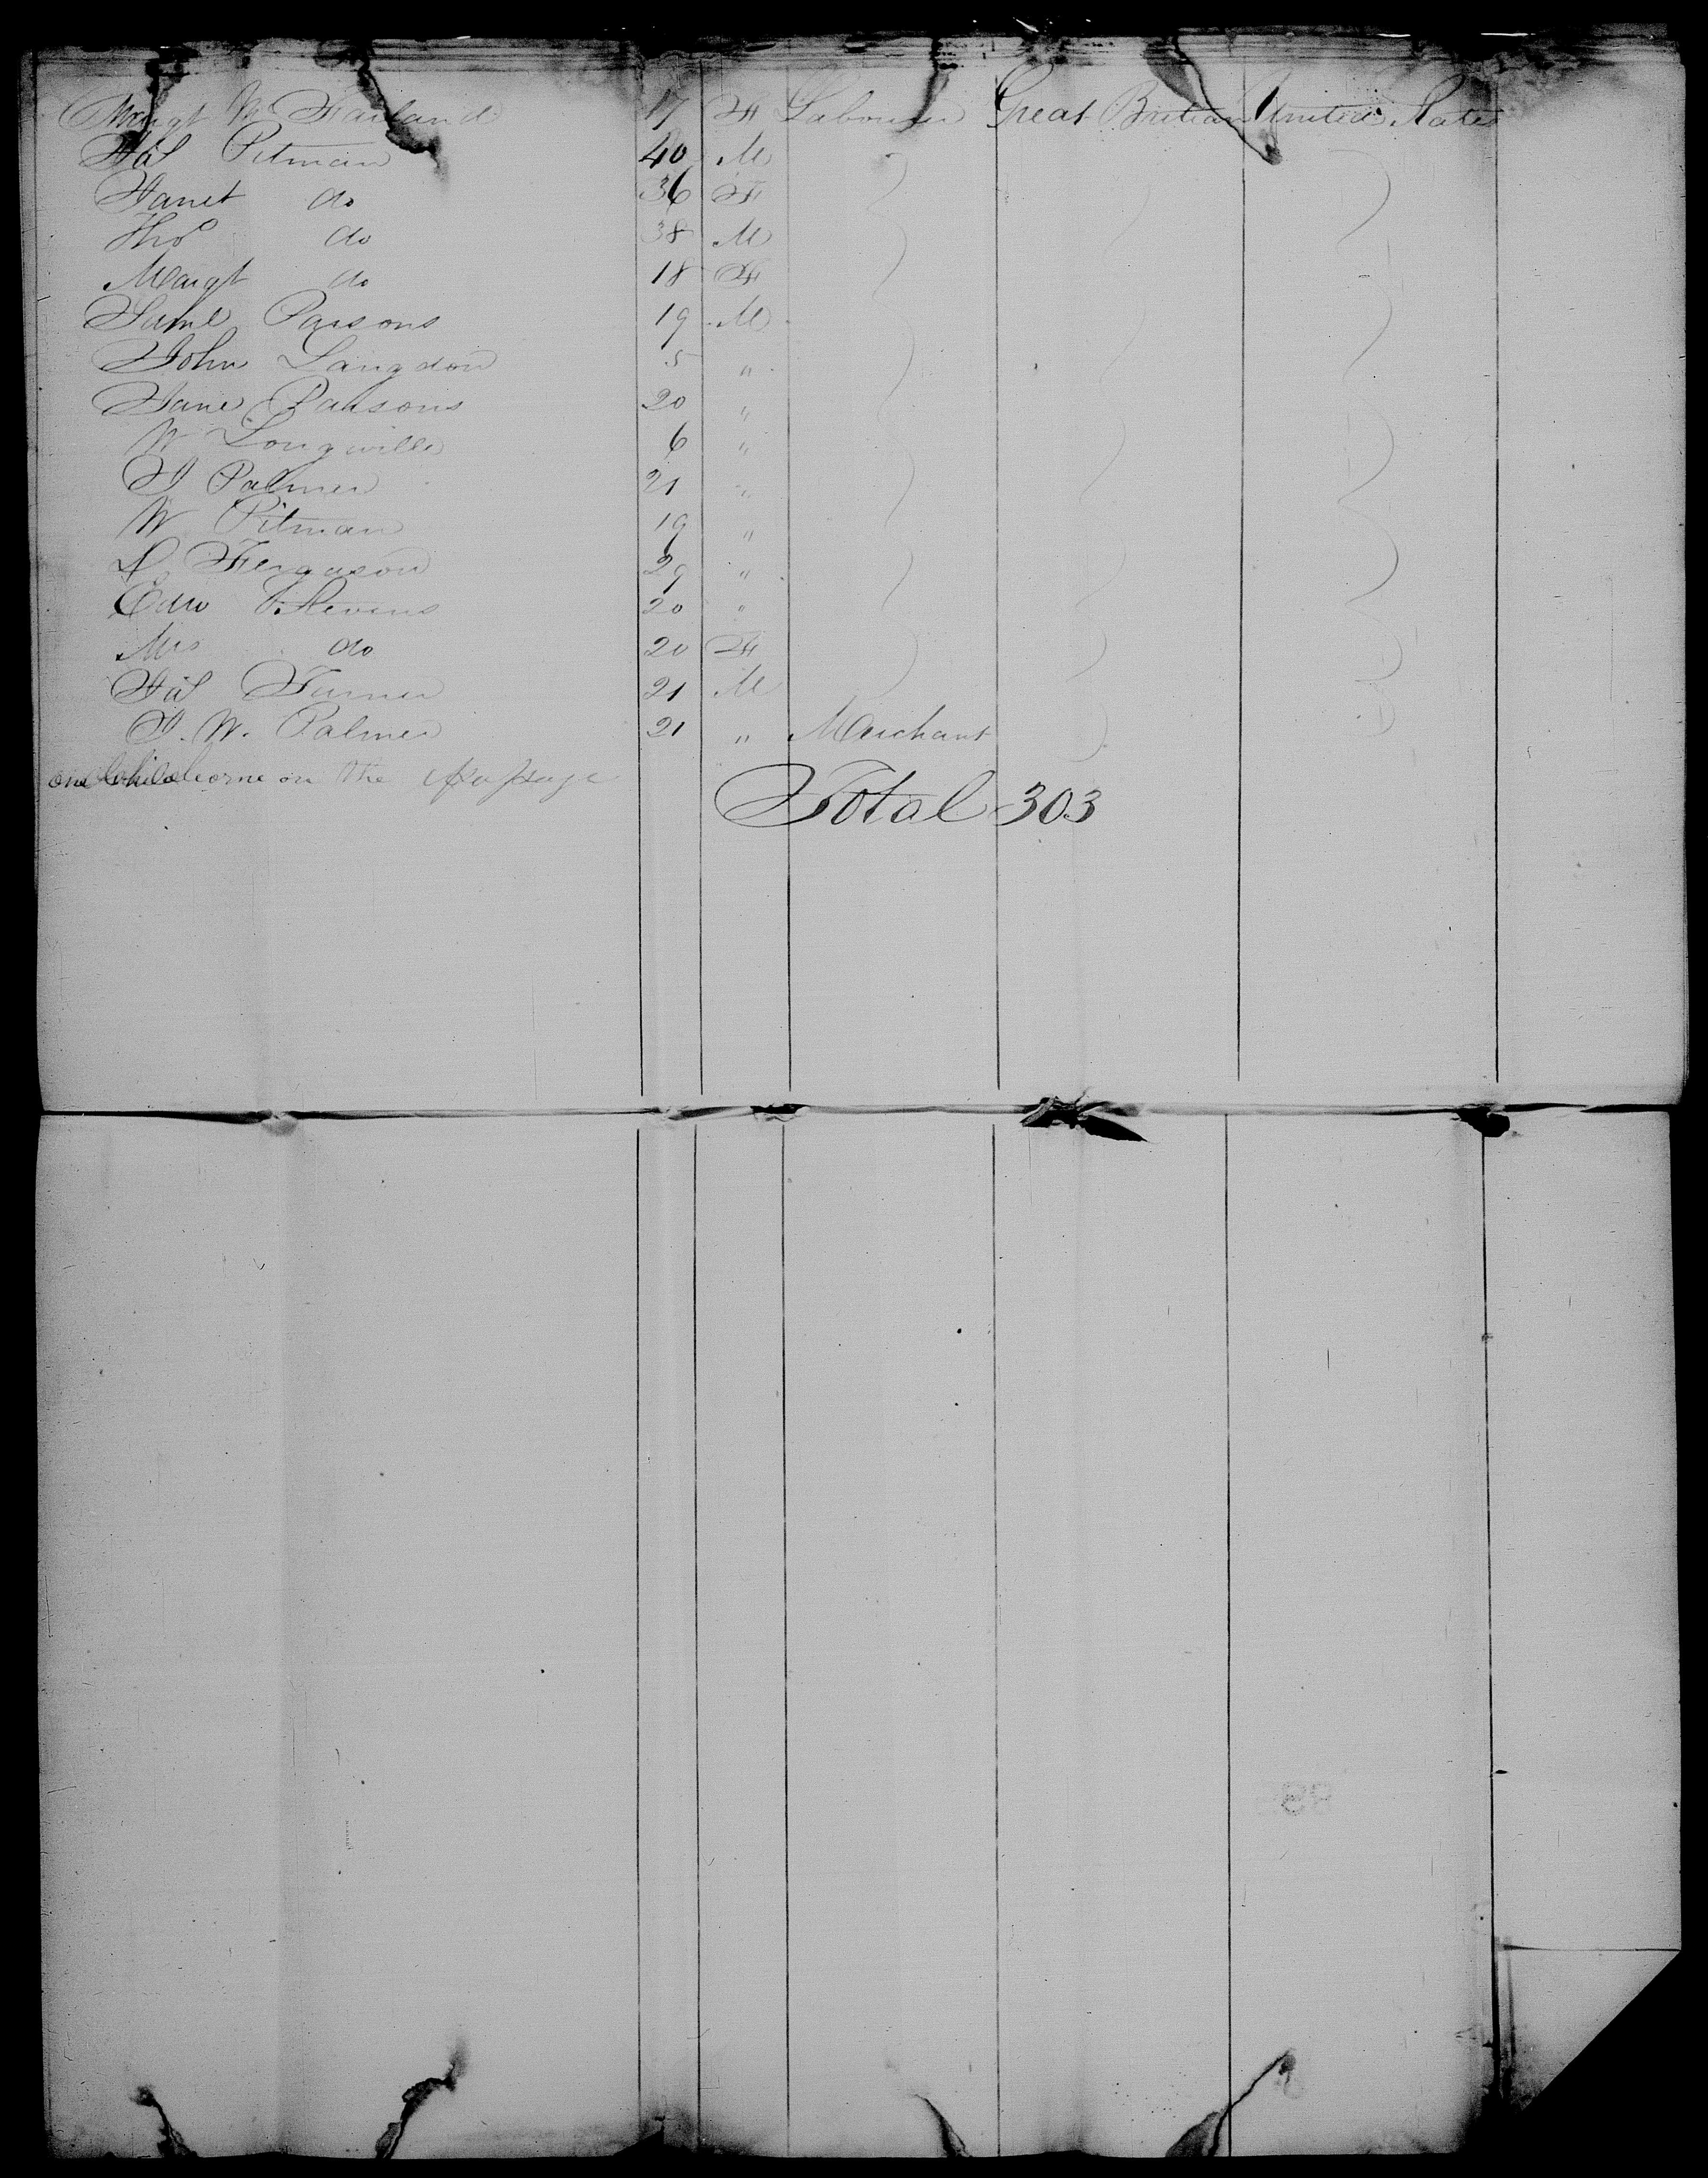 Margt Mc Farland 17 F Labourer Great Britian United States
Jas Pitman 40 M
Janet do 36 F
Thos do 38 M
Margt do 18 F
Saml Parsons 19 M
John Langdon 5 "
Jane Parsons 20 "
W Longville 6 "
J Palmer 21 "
W Pitman 19 "
D Ferguson 29 "
Edw Stevens 20 "
Mrs do 20 F
Jas Turner 21 M
J. W. Palmer 21 " Merchant
one Child borne on the passage
Total 303